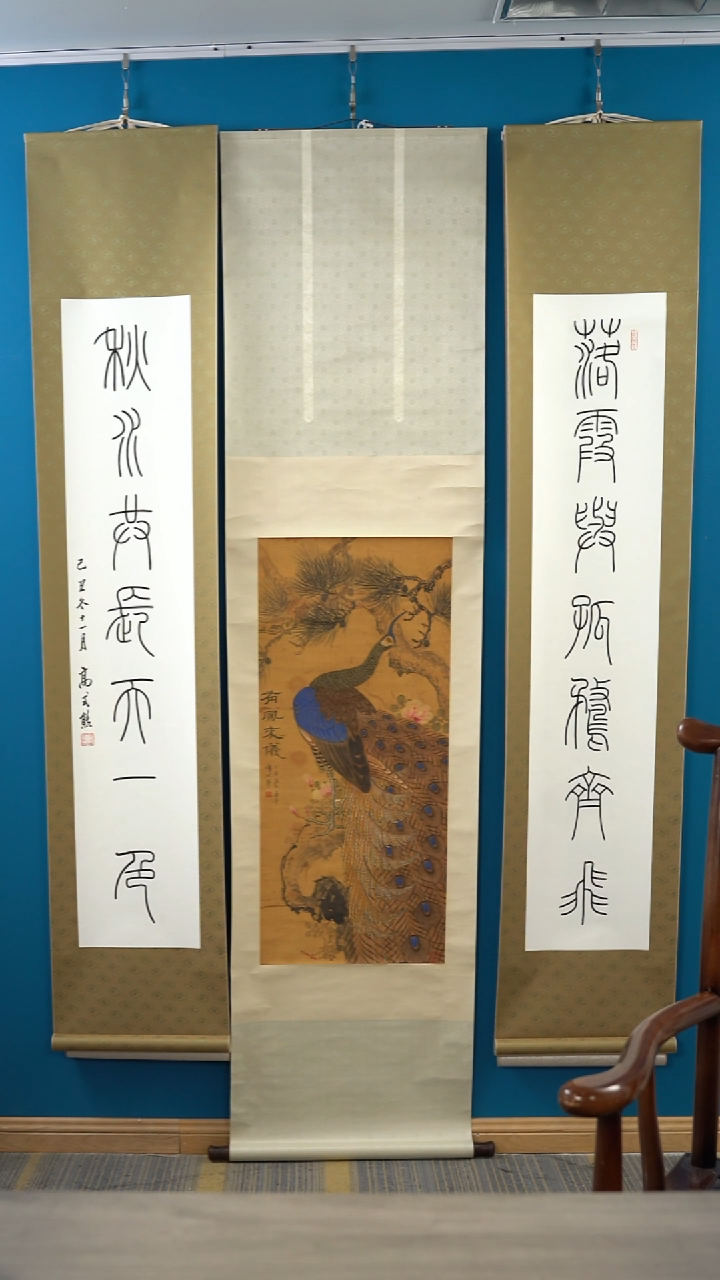 落霞與孤鶩齊飛
秋水共長天一色
己丑冬十一月 高式熊
有鳳來儀